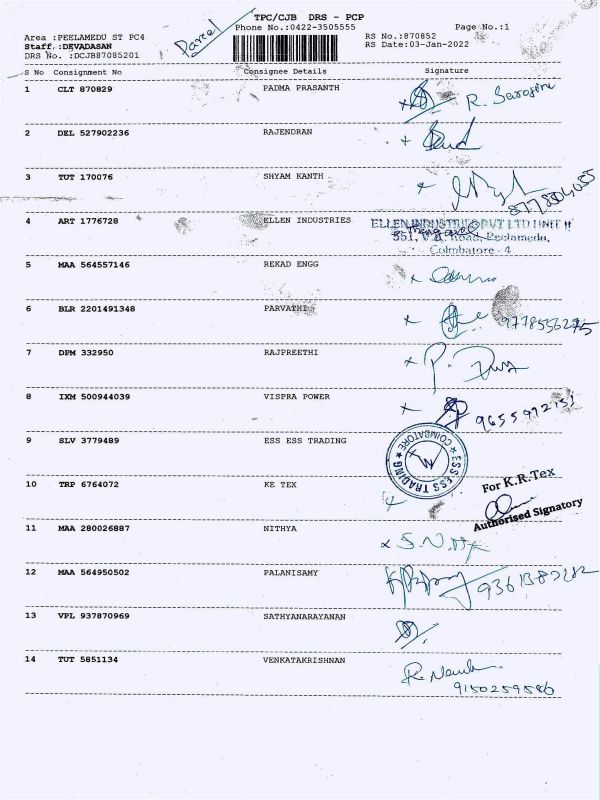 TPC/CJB DRS - PCP
Parcel
Phone No.:0422-3505555
Page No.:1
Area :PEELAMEDU ST PC4
RS No.:870852
Staff.:DEVADASAN
RS Date:03-Jan-2022
DRS No. :DCJB87085201
S No Consignment No Consignee Details Signature
1 CLT 870829 PADMA PRASANTH
R. Sarojini
2 DEL 527902236 RAJENDRAN
3 TUT 170076 SHYAM KANTH
4 ART 1776728 ELLEN INDUSTRIES
ELLEN INDUSTRIES PVT LTD UNIT II
351, Road, Peelamedu,
Coimbatore - 4
5 MAA 564557146 REKAD ENGG
6 BLR 2201491348 PARVATHI
9778556275
7 DPM 332950 RAJPREETHI
8 IXM 500944039 VISPRA POWER
9 SLV 3779489 ESS ESS TRADING
ESS ESS TRADING ★ COIMBATORE ★
10 TRP 6764072 KE TEX
For K.R.Tex
Authorised Signatory
11 MAA 280026887 NITHYA
12 MAA 564950502 PALANISAMY
13 VPL 937870969 SATHYANARAYANAN
14 TUT 5851134 VENKATAKRISHNAN
9150259586